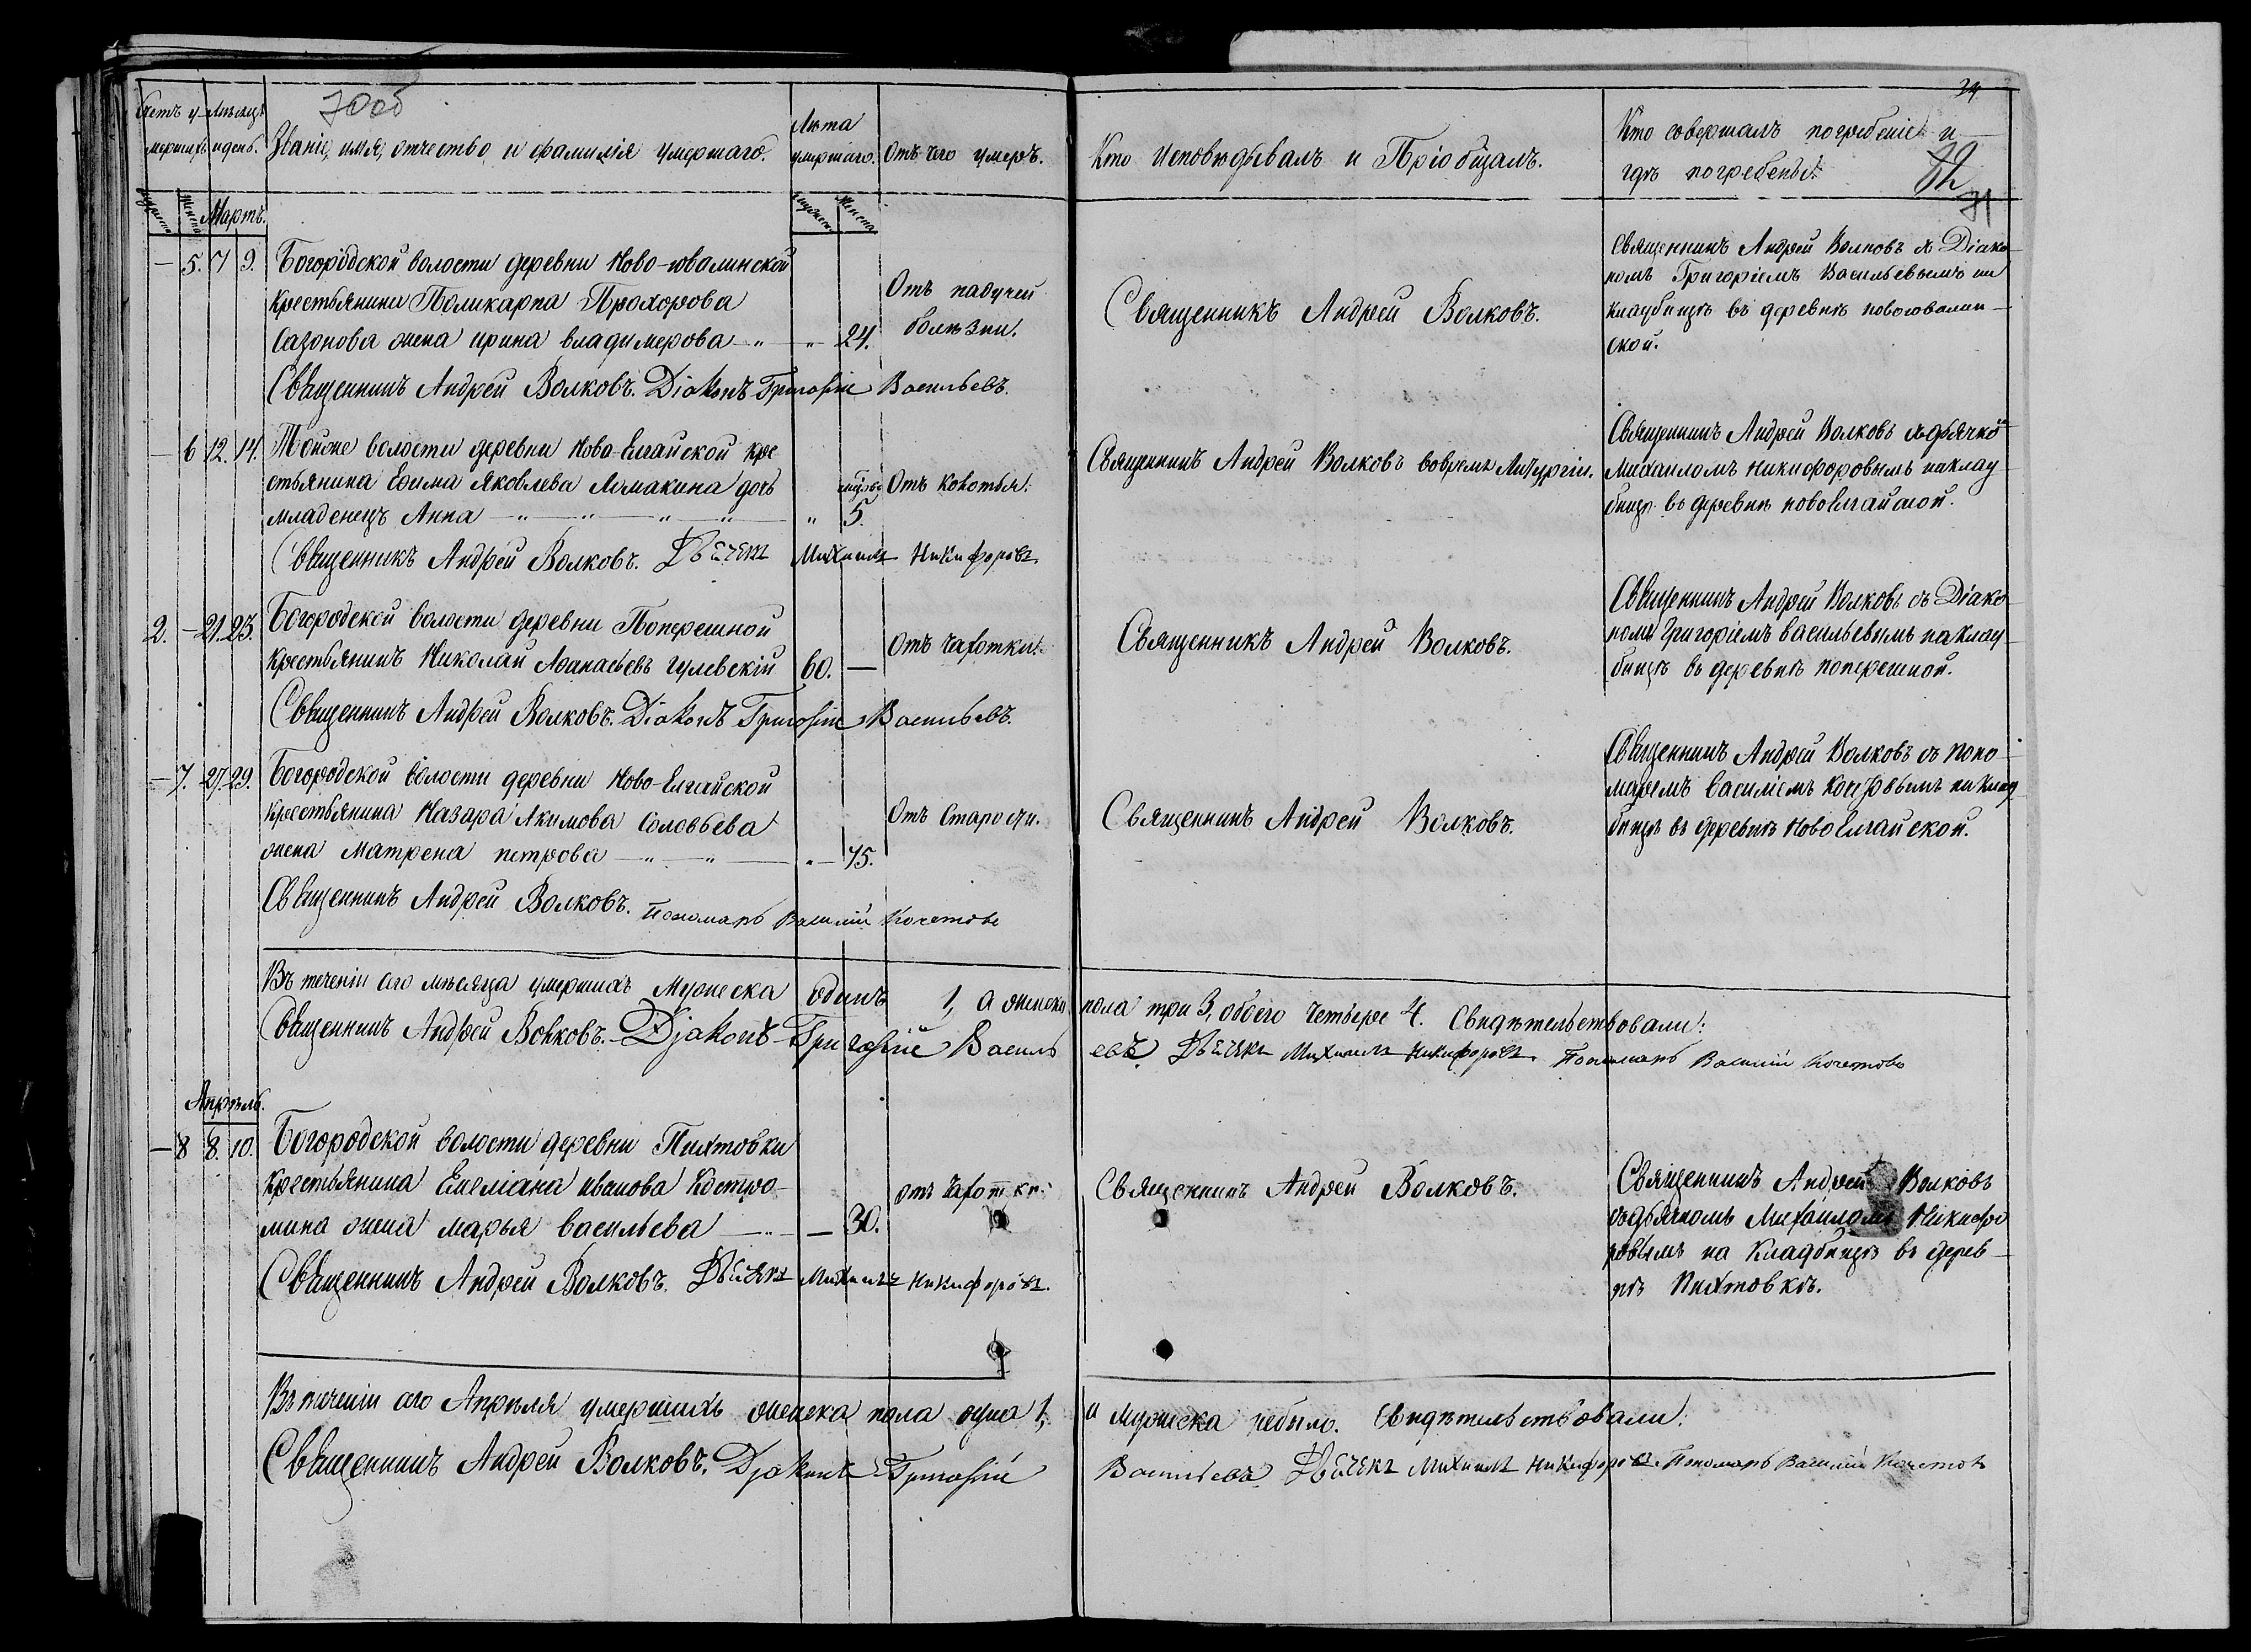 70об
34
Счетъ у-
мершихъ.
Мѣсяцъ
и день.
Званіе, имя, отчество, и фамилія умершаго.
Лѣта
умершаго.
Отъ чего умеръ.
Кто Исповѣдывалъ и Пріобщалъ.
Кто совершалъ погребеніе и
гдѣ погребены.
71
Мартъ.
— 5. 7 9. Богородской волости деревни Ново-ювалинской
крестьянина Поликарпа Прохорова
Сазонова жена ирина владимерова — " — " — 24.
Отъ падучей
болѣзни.
Священникъ Андрей Волковъ.
Священникъ Андрей Волковъ съ Діако-
номъ Григоріемъ Васильевымъ на
кладбищѣ въ деревнѣ новоювалин-
ской.
Священникъ Андрей Волковъ. Діаконъ Григорій Васильевъ.
— 6 12. 14. Тойже волости деревни Ново-Елгайской кре
стьянина Ефима Яковлева Ломакина дочь
младенецъ Анна — " — " — " — " — " 5.
Отъ кокотья.
Священникъ Андрей Волковъ вовремя Литургіи.
Священникъ Андрей Волковъ съ дьячко
Михаиломъ Никифоровымъ на клад
бищѣ въ деревнѣ новоелгайской.
Священникъ Андрей Волковъ. Дьячекъ Михаилъ Никифоровъ.
2. — 21. 23. Богородской волости деревни Поперешной
крестьянинъ Николай Афанасьевъ гулевскій 60. —
Отъ чахотки.
Священникъ Андрей Волковъ.
Священникъ Андрей Волковъ съ Діако
номъ Григоріемъ васильевымъ на клад
бищѣ въ деревнѣ поперешной.
Священникъ Андрей Волковъ. Діаконъ Григорій Васильевъ.
— 7. 27. 29. Богородской волости деревни Ново-Елгайской
крестьянина Назара Акимова Соловьева
жена Матрена петрова — " — " — " — 75.
Отъ Старости.
Священникъ Андрей Волковъ.
Священникъ Андрей Волковъ съ поно
маремъ василіемъ кочетовымъ на клад
бищѣ въ деревнѣ Новоелгайской.
Священникъ Андрей Волковъ. Пономарь Василій Кочетовъ
Въ теченіи сего мѣсяца умершихъ Мужеска одинъ 1, а женска пола три 3, обоего четверо 4. Свидѣтельствовали:
Священникъ Андрей Волковъ. Діаконъ Григорій Васильевъ. Дьячекъ Михаилъ Никифоровъ. Пономарь Василій Кочетовъ
Апрѣль.
— 8 8. 10. Богородской волости деревни Пихтовки
крестьянина Емеліана иванова Костро-
мина жена марья васильева — " — — 30.
отъ чахотки.
Священникъ Андрей Волковъ.
Священникъ Андрей Волковъ
съ дьячкомъ Михаиломъ Никифо
ровымъ на кладбищѣ въ дерев-
нѣ Пихтовкѣ.
Священникъ Андрей Волковъ. Дьячекъ Михаилъ Никифоровъ.
Въ теченіи сего Апрѣля умершихъ женска пола одна 1, а мужеска небыло. Свидѣтельствовали:
Священникъ Андрей Волковъ. Діаконъ Григорій Васильевъ. Дьячекъ Михаилъ Никифоровъ. Пономарь Василій Кочетовъ